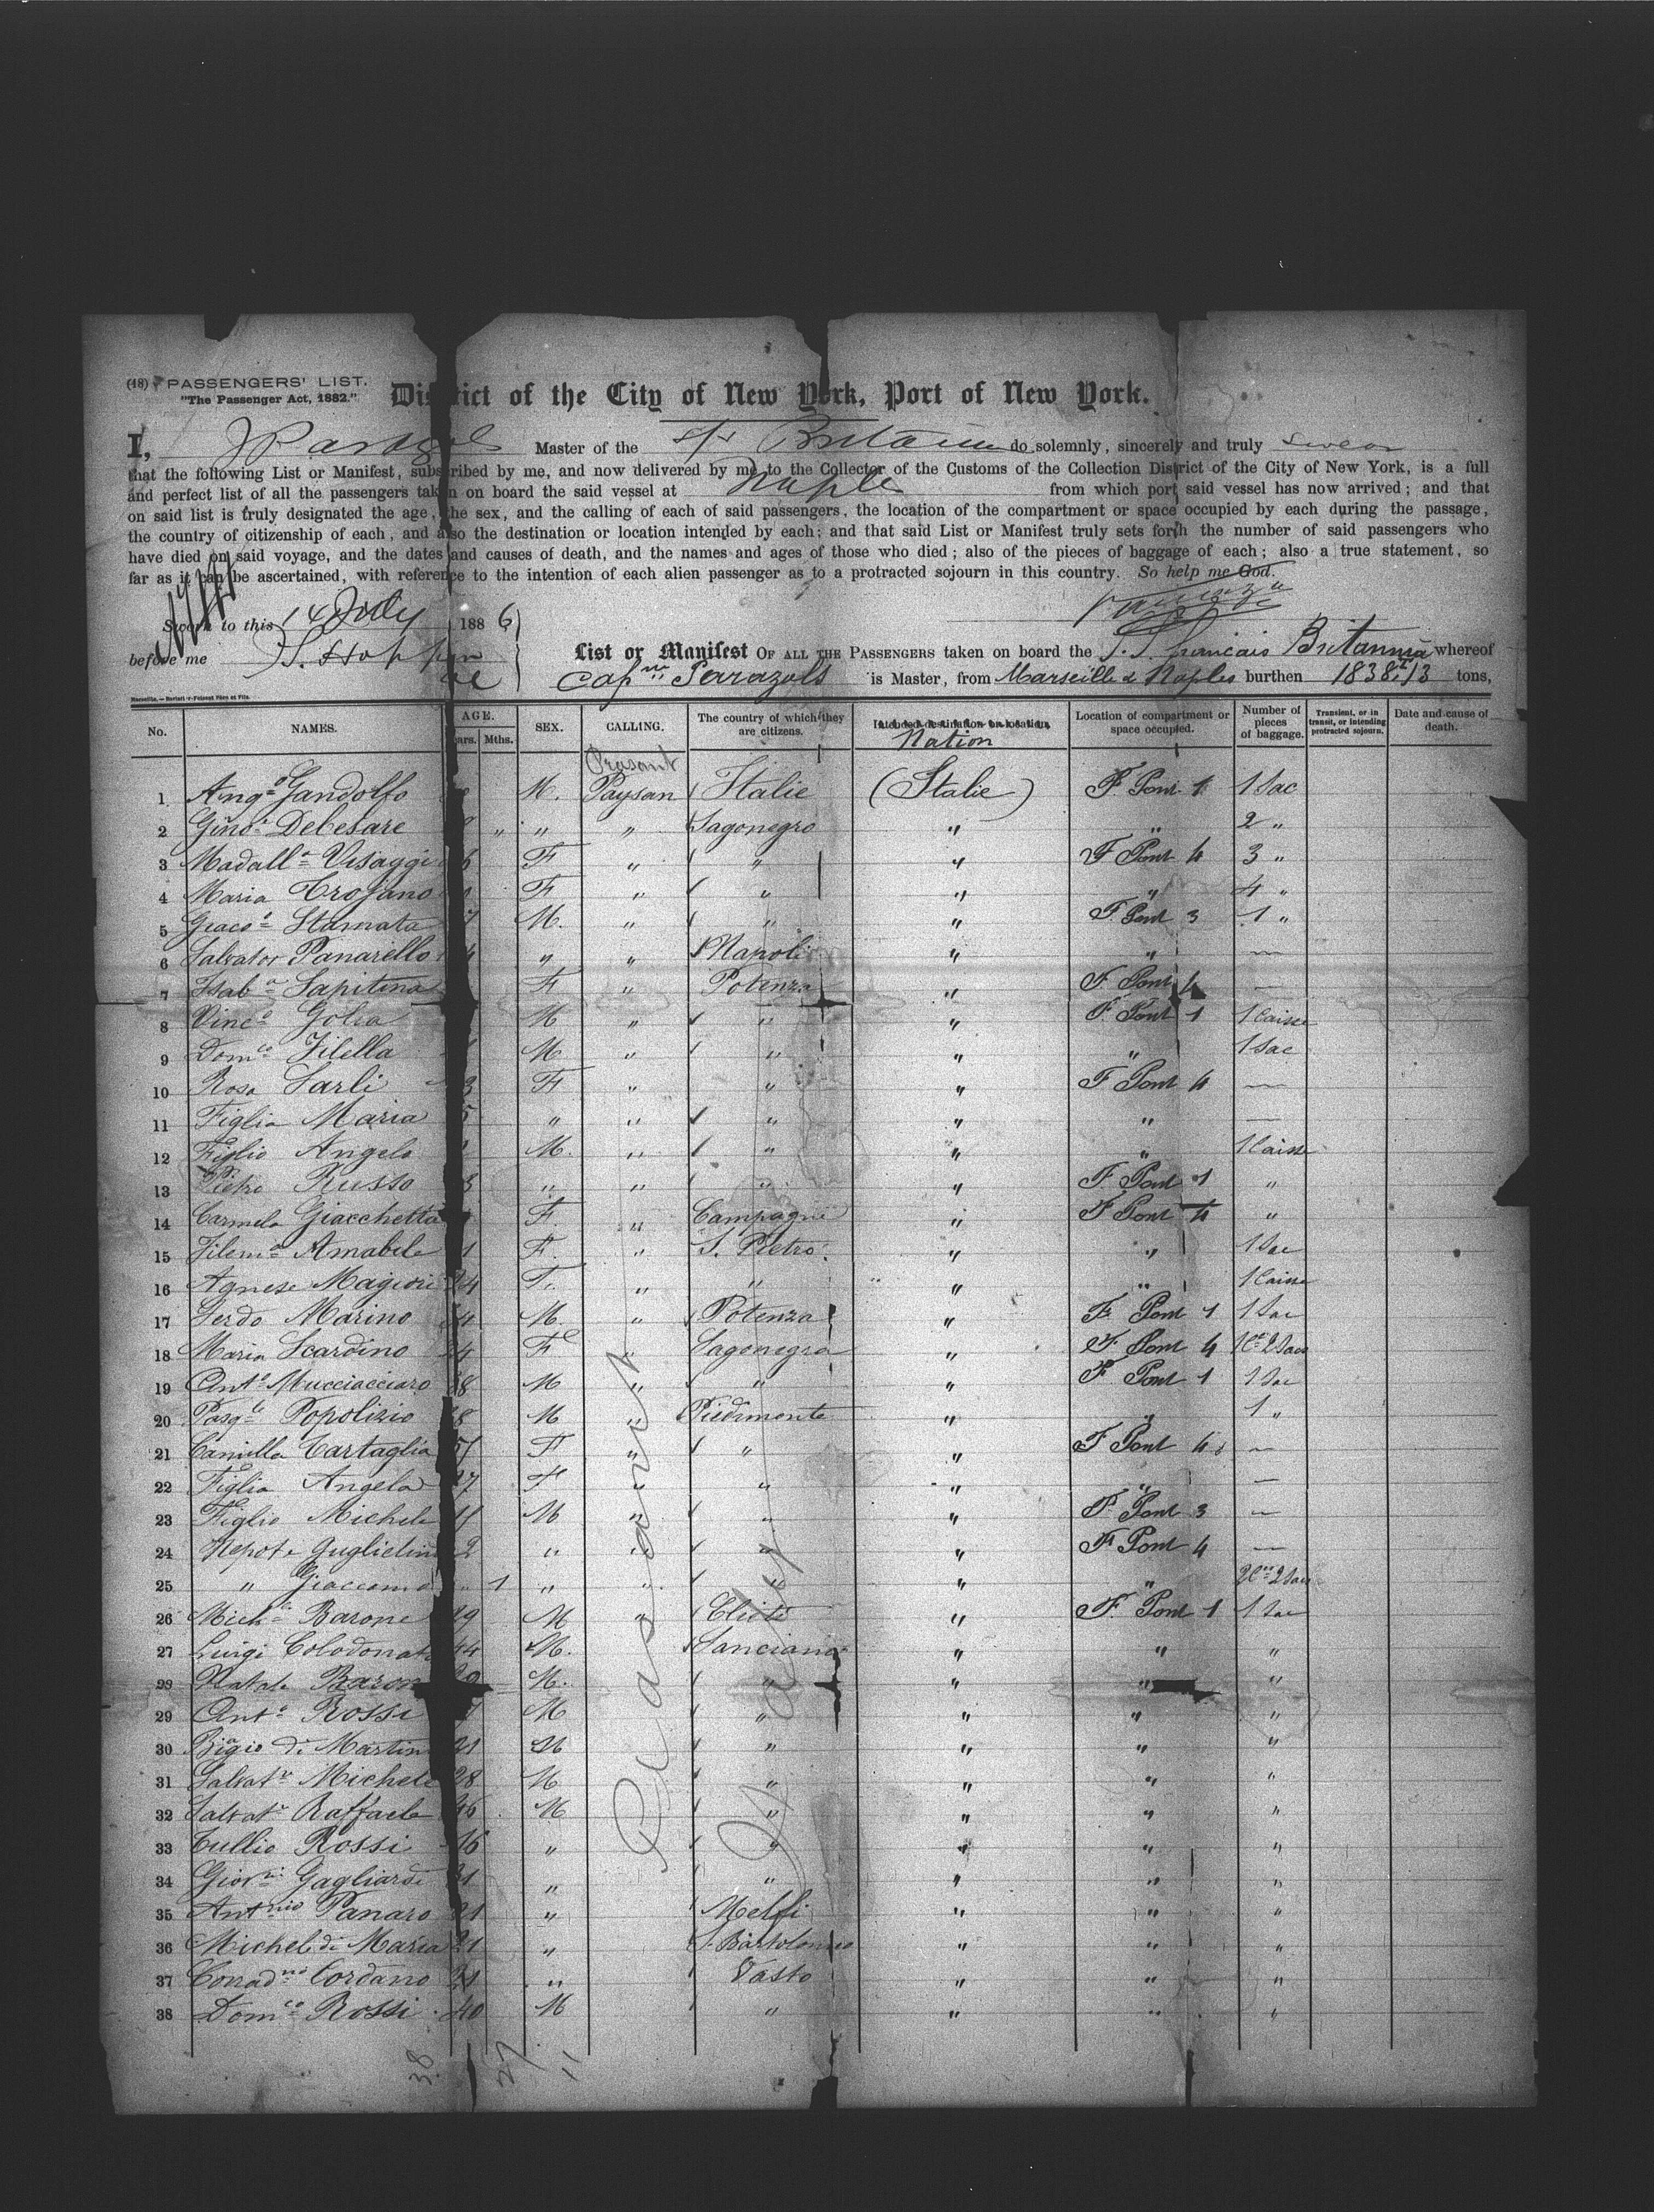 (18) PASSENGERS' LIST.
"The Passenger Act, 1882."
District of the City of New York, Port of New York.
I, Master of the S/S Britannia do solemnly, sincerely and truly swear
that the following List or Manifest, subscribed by me, and now delivered by me to the Collector of the Customs of the Collection District of the City of New York, is a full
and perfect list of all the passengers taken on board the said vessel at Naple from which port said vessel has now arrived; and that
on said list is truly designated the age, the sex, and the calling of each of said passengers, the location of the compartment or space occupied by each during the passage,
the country of citizenship of each, and also the destination or location intended by each; and that said List or Manifest truly sets forth the number of said passengers who
have died on said voyage, and the dates and causes of death, and the names and ages of those who died; also of the pieces of baggage of each; also a true statement, so
far as it can be ascertained, with reference to the intention of each alien passenger as to a protracted sojourn in this country. So help me God.
Sworn to this 14 July 1886
before me
List or Manifest OF ALL THE PASSENGERS taken on board the S.S. francais Britannia whereof
Capne Parazols is Master, from Marseille & Naples burthen 1838 tons,
No. NAMES. AGE. Years. Mths. SEX. CALLING. The country of which they are citizens. Intended destination or location. Nation Location of compartment or space occupied. Number of pieces of baggage. Transient, or in transit, or intending protracted sojourn. Date and cause of death.
Peasant
1 Ango Gandolfo M. Paysan Italie (Italie) F Pont 1 1 Sac
2 Debesare " " " Lagonegro " " 2 "
3 Madalla Visaggi F " " " F Pont 4 3 "
4 Maria Trojano F " " " " 4 "
5 Giaco Stamata M. " " " F Pont 3 1 "
6 Salvator Panarello " " Napoli " " —
7 Isaba Sapitina F " Potenza " F Pont 4 —
8 Vinco Golia M " " " F Pont 1 1 Caisse
9 Domco Filella M " " " " 1 Sac
10 Rosa Sarli F " " " F Pont 4 —
11 Figlia Maria " " " " " —
12 Figlio Angelo M. " " " " 1 Caisse
13 Pietro Russo " " " " F Pont 1 "
14 Carmela Giacchetta F. " Campagni " F Pont 4 "
15 Filoma Amabile F. " S. Pietro " " 1 Sac
16 Agnese Magiori 24 F. " " " " 1 Caisse
17 Ferdo Marino M. " Potenza " F Pont 1 1 Sac
18 Maria Scardino F " Lagonegra " F Pont 4 1 Ce 2 Sacs
19 Anto Mucciacciaro M " " " F Pont 1 1 Sac
20 Pasqle Popolizio M " Piedimonte " " 1 "
21 Camilla Cartaglia F " " " F Pont 4 —
22 Figlia Angela 17 F " " " " —
23 Figlio Michele M " " " F Pont 3 —
24 Nepote Guglielmo 2 " " " " F Pont 4 —
25 " Giaccomo " 1 " " " " " 2 Ces 2 Sacs
26 Michle Barone M " " F Pont 1 1 Sac
27 Luigi Colodonato 44 M. Lanciano " " "
28 Natale Barone M. " " " "
29 Anto Rossi M " " " "
30 Biagio di Martino 21 M " " " "
31 Salvatre Michele 28 M " " " "
32 Salvatre Raffaele 46 M " " " "
33 Tullio Rossi 16 " " " " "
34 Giovni Gagliardi " " " " "
35 Antonio Panaro 21 " Melfi " " "
36 Michele di Maria 21 " S. Bartolomeo " " "
37 Conradno Cordano " Vasto " " "
38 Domco Rossi 40 M " " " "
Peasant
Italy
38 27 11